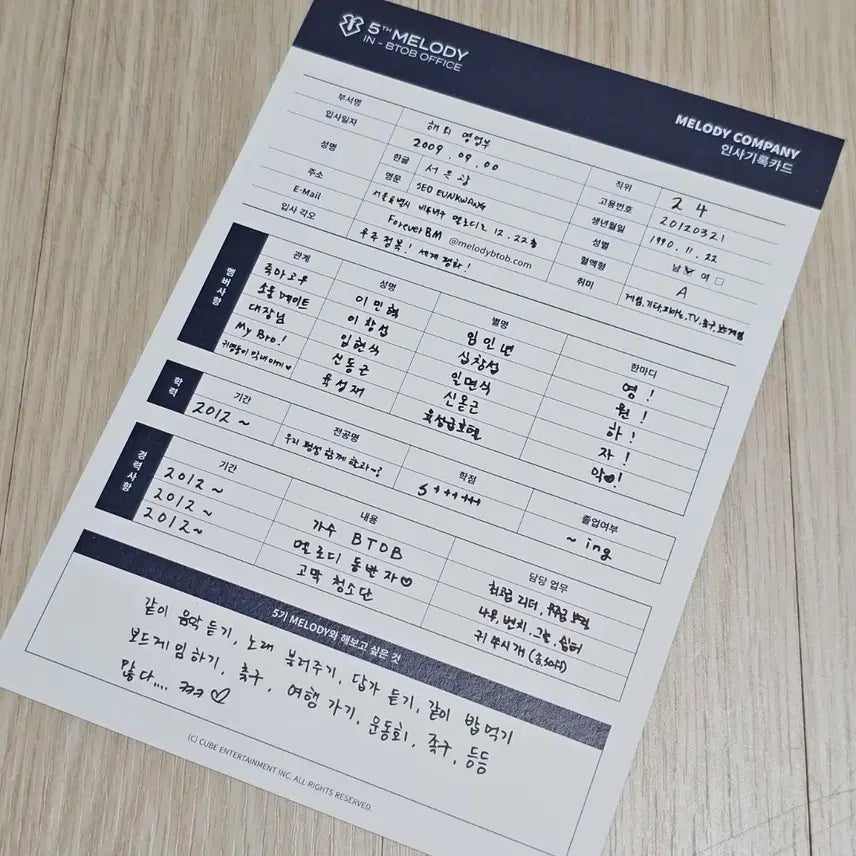 5TH MELODY
IN - BTOB OFFICE
MELODY COMPANY
인사기록카드
부서명 해외 영업부 직위 24
입사일자 2009. 09. 00 고용번호 20120321
성명 한글 서은광 생년월일 1990. 11. 22
영문 SEO EUNKWANG 성별 남 여
주소 서울특별시 비투비구 멜로디로 12. 22층 혈액형 A
E-Mail ForeverBM @melodybtob.com 취미 게임, 기타, 피아노, TV, 축구, 보드게임
입사 각오 우주 정복! 세계 평화!
멤버사항
관계 성명 별명 한마디
죽마고우 이민혁 임인년 영!
소울메이트 이창섭 십창섭 원!
대장님 임현식 일면식 하!
My Bro! 신동근 신은근 자!
귀염둥이 막내아가♥ 육성재 육성급호텔 악♥!
학력
기간 전공명 학점 졸업여부
2012 ~ 우리 평생 함께 한과~! S++++++ ~ing
경력사항
기간 내용 담당 업무
2012 ~ 가수 BTOB 최고급 리더,
2012 ~ 멜로디 동반자♡ 나무, 벤치, 그늘, 쉼터
2012 ~ 고막 청소단 귀 쑤시개
5기 MELODY와 해보고 싶은 것
같이 음악 듣기, 노래 불러주기, 답가 듣기, 같이 밥 먹기
보드게임 하기, 축구, 여행 가기, 운동회, 족구, 등등
많다.... ㅋㅋㅋ ♡
(C) CUBE ENTERTAINMENT INC. ALL RIGHTS RESERVED.